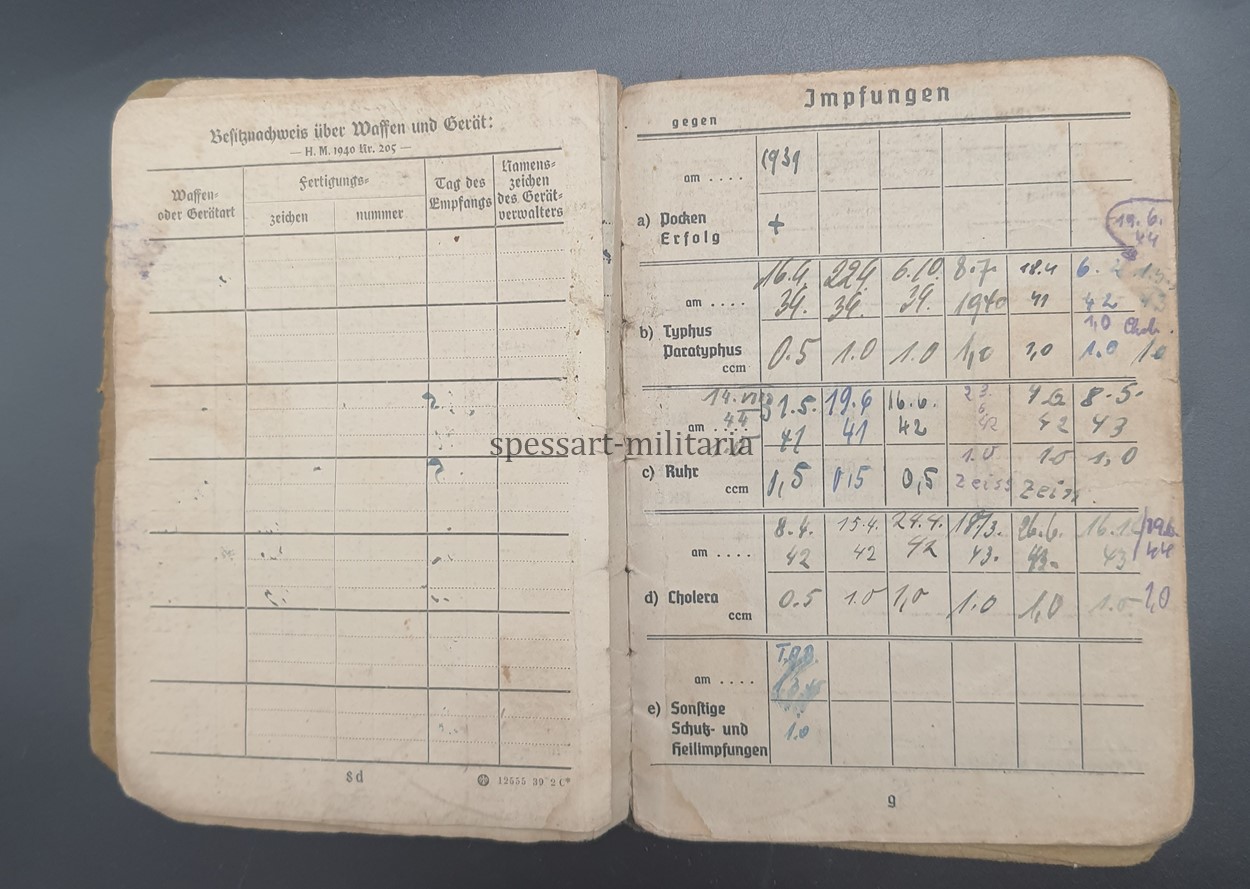 Besitznachweis über Waffen und Gerät:
— H. M. 1940 Nr. 205 —
Waffen-
oder Gerätart
Fertigungs-
zeichen
nummer
Tag des
Empfangs
Namens-
zeichen
des Gerät-
verwalters
8d
12555 39 2 C*
Impfungen
gegen
am . . . .
1939
a) Pocken
Erfolg
+
19. 6.
44
16.4. 22.4. 6.10. 8.7. 18.4 6.
am . . . .
39. 39. 39. 1940 41 42 43
1,0 Chol.
b) Typhus
Paratyphus
ccm
0.5 1.0 1.0 1,0 1,0 1.0 1.0
14. VIII 1.5. 19.6 16.6. 23. 7.12 8.5.
44 6.
am . . . .
41 41 42 42 42 43
1.0 1.0 1,0
c) Ruhr
ccm
0,5 0,5 0,5 Zeiss Zeiss.
8.4. 15.4. 24.4. 18/3. 26.6. 19.6.
am . . . .
42 42 42 43. 43. 43 44
d) Cholera
ccm
0.5 1.0 1,0 1.0 1,0 1.0 1,0
am . . . .
e) Sonstige
Schutz- und
Heilimpfungen
1.0
9
spessart-militaria